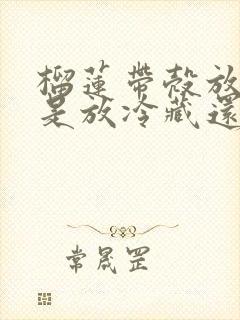 榴蓮帶殼放
是放冷藏還
常晟罡